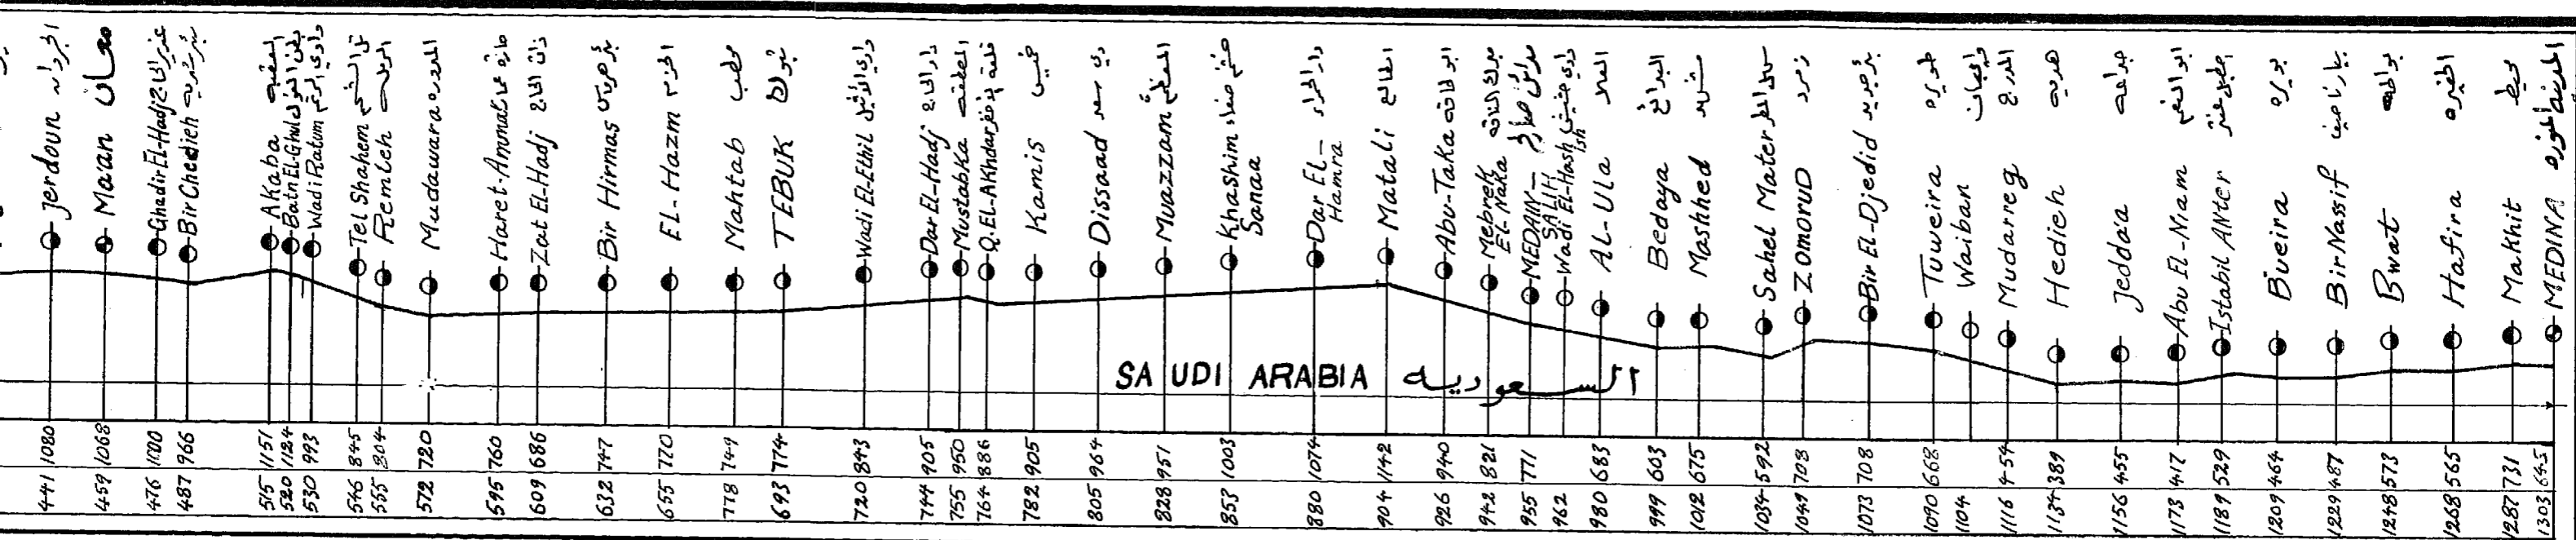 الجردانه Jerdoun 1080 441
معان Ma'an 1068 459
غدير الحاج Ghadir El-Hadj 1000 476
بئر شيديه Bir Chedieh 966 487
العقبه Akaba 1151 515
بطن الغول Batn El-Ghul 1124 520
وادي الرتم Wadi Ratum 993 530
تل الشحم Tel Shahem 845 546
الرمله Remleh 804 555
المدوره Mudawara 720 572
Haret-Ammar 760 595
ذات الحاج Zat El-Hadj 686 609
بئر هرماس Bir Hirmas 747 632
الحزم El-Hazm 770 655
محطب Mahtab 749 778
تبوك TEBUK 774 693
وادي الاثيل Wadi El-Ethil 843 720
دار الحاج Dar El-Hadj 905 744
Mustabka 950 755
Q.El-Akhdar 886 764
خميس Kamis 905 782
دي سعد Dissaad 964 805
المعظم Muazzam 951 828
خشم صنعاء Khashim Sanaa 1003 853
دار الحمراء Dar El-Hamra 1074 880
المطالع Matali 1142 904
ابو طاقه Abu-Taka 940 926
مبرك الناقه Mebrek El-Naka 821 942
مدائن صالح MEDAIN-SALIH 771 955
وادي حشيش Wadi El-Hashish 962
العلا AL-Ula 683 980
البدائع Bedaya 603 999
مشهد Mashhed 675 1012
سهل المطر Sahel Mater 592 1034
زمرد Zomorud 708 1049
بئر جديد Bir El-Djedid 708 1073
طويره Tuweira 668 1090
وايبان Waiban 1104
المدرج Mudarreg 454 1116
هديه Hedieh 389 1134
جداعه Jeddaa 455 1156
ابو النعم Abu El-Niam 417 1173
اصطبل عنتر Istabil ANter 529 1189
بويره Bueira 464 1209
بيار ناصيف Bir Nassif 487 1229
بواط Bwat 573 1248
الحفيره Hafira 565 1268
محيط Makhit 731 1287
المدينه المنوره MEDINA 645 1303
SAUDI ARABIA السعوديه